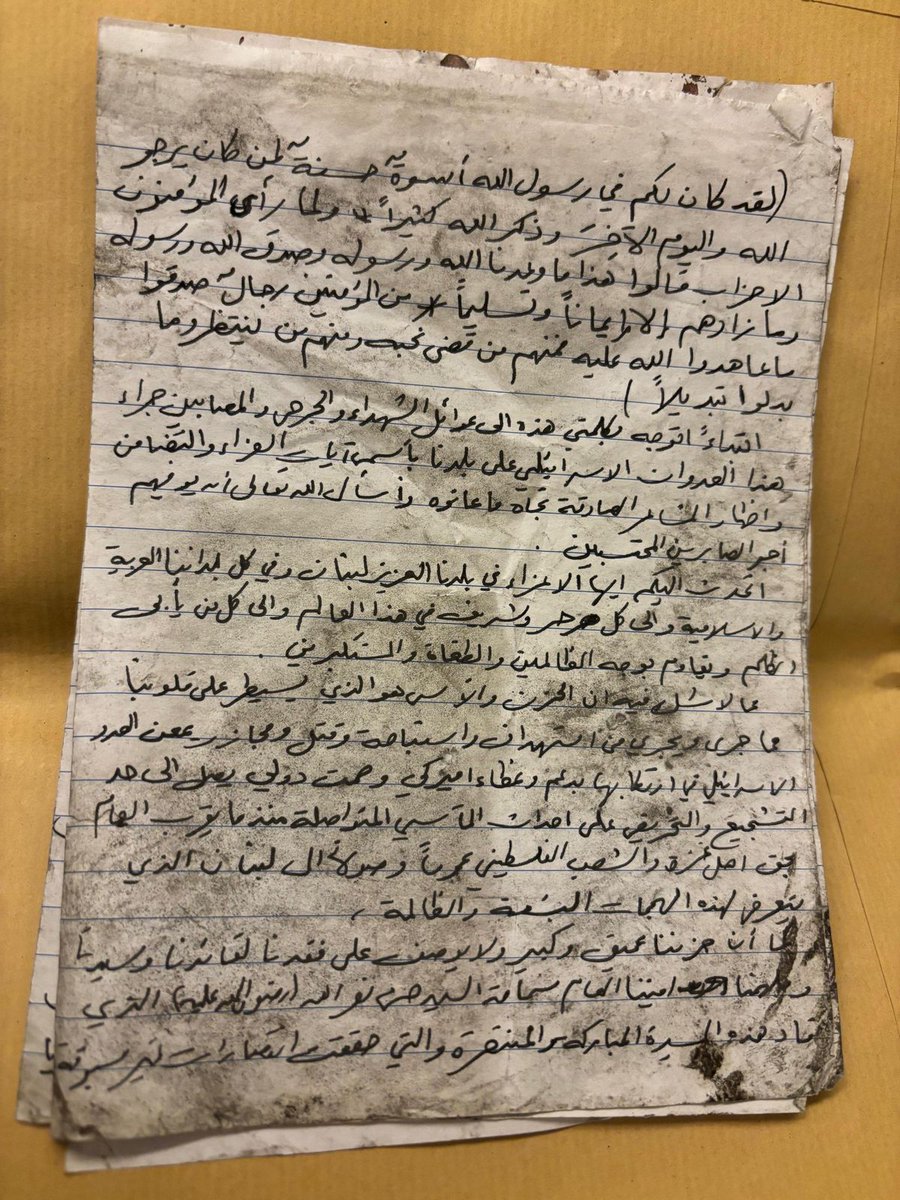 (لقد كان لكم في رسول الله أسوةٌ حسنةٌ لمن كان يرجو
الله واليوم الآخِرَ وذكر الله كثيراً * ولما رأى المؤمنون
الاحزاب قالوا هذا ما وعدنا الله ورسوله وصدق الله ورسوله
وما زادهم إلا إيماناً وتسليماً * من المؤمنين رجالٌ صدقوا
ما عاهدوا الله عليه فمنهم من قضى نحبه ومنهم من ينتظر وما
بدلوا تبديلاً)
ابتداءً اتوجه بكلمتي هذه الى عوائل الشهداء والجرحى والمصابين جراء
هذا العدوان الاسرائيلي على بلدنا بأسمى آيات العزاء والتضامن
واظهار المشاعر الصادقة تجاه ما عانوه وأسأل الله تعالى أن يوفيهم
أجر الصابرين المحتسبين.
اتحدث اليكم ايها الاعزاء في بلدنا العزيز لبنان وفي كل بلداننا العربية
والاسلامية والى كل حر وشريف في هذا العالم والى كل من يأبى
الظلم ويقاوم بوجه الظالمين والطغاة والمستكبرين.
مما لا شك فيه ان الحزن والأسى هو الذي يسيطر على قلوبنا
مما جرى ويجري من استهداف واستباحة وقتل ومجازر يمعن العدو
الاسرائيلي في ارتكابها بدعم وغطاء اميركي وصمت دولي يصل الى حد
التشجيع والتحريض على احداث المآسي المتواصلة منذ ما يقرب العام
بحق اهل غزة والشعب الفلسطيني عموماً وصولاً الى لبنان الذي
يتعرض لهذه الهجمات البشعة والظالمة،
كما أن حزننا عميق وكبير ولا يوصف على فقدنا لقائدنا وسيدنا
اميننا العام سماحة السيد حسن نصر الله (رضوان الله عليه) الذي
قاد هذه المسيرة المباركة والمنتصرة والتي حققت انتصارات غير مسبوقة